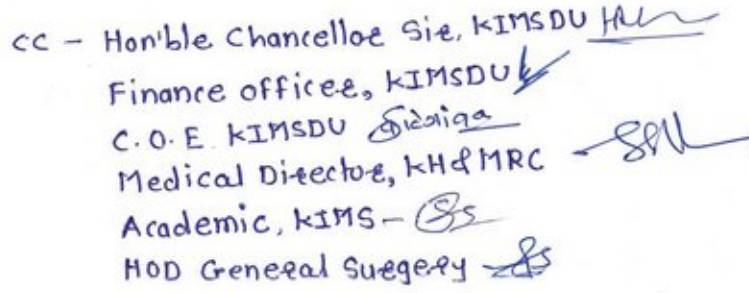 CC - Hon'ble Chancellor Sir, KIMSDU
Finance officer, KIMSDU
C.O.E. KIMSDU
Medical Director, KH & MRC -
Academic, KIMS -
HOD General Surgery -